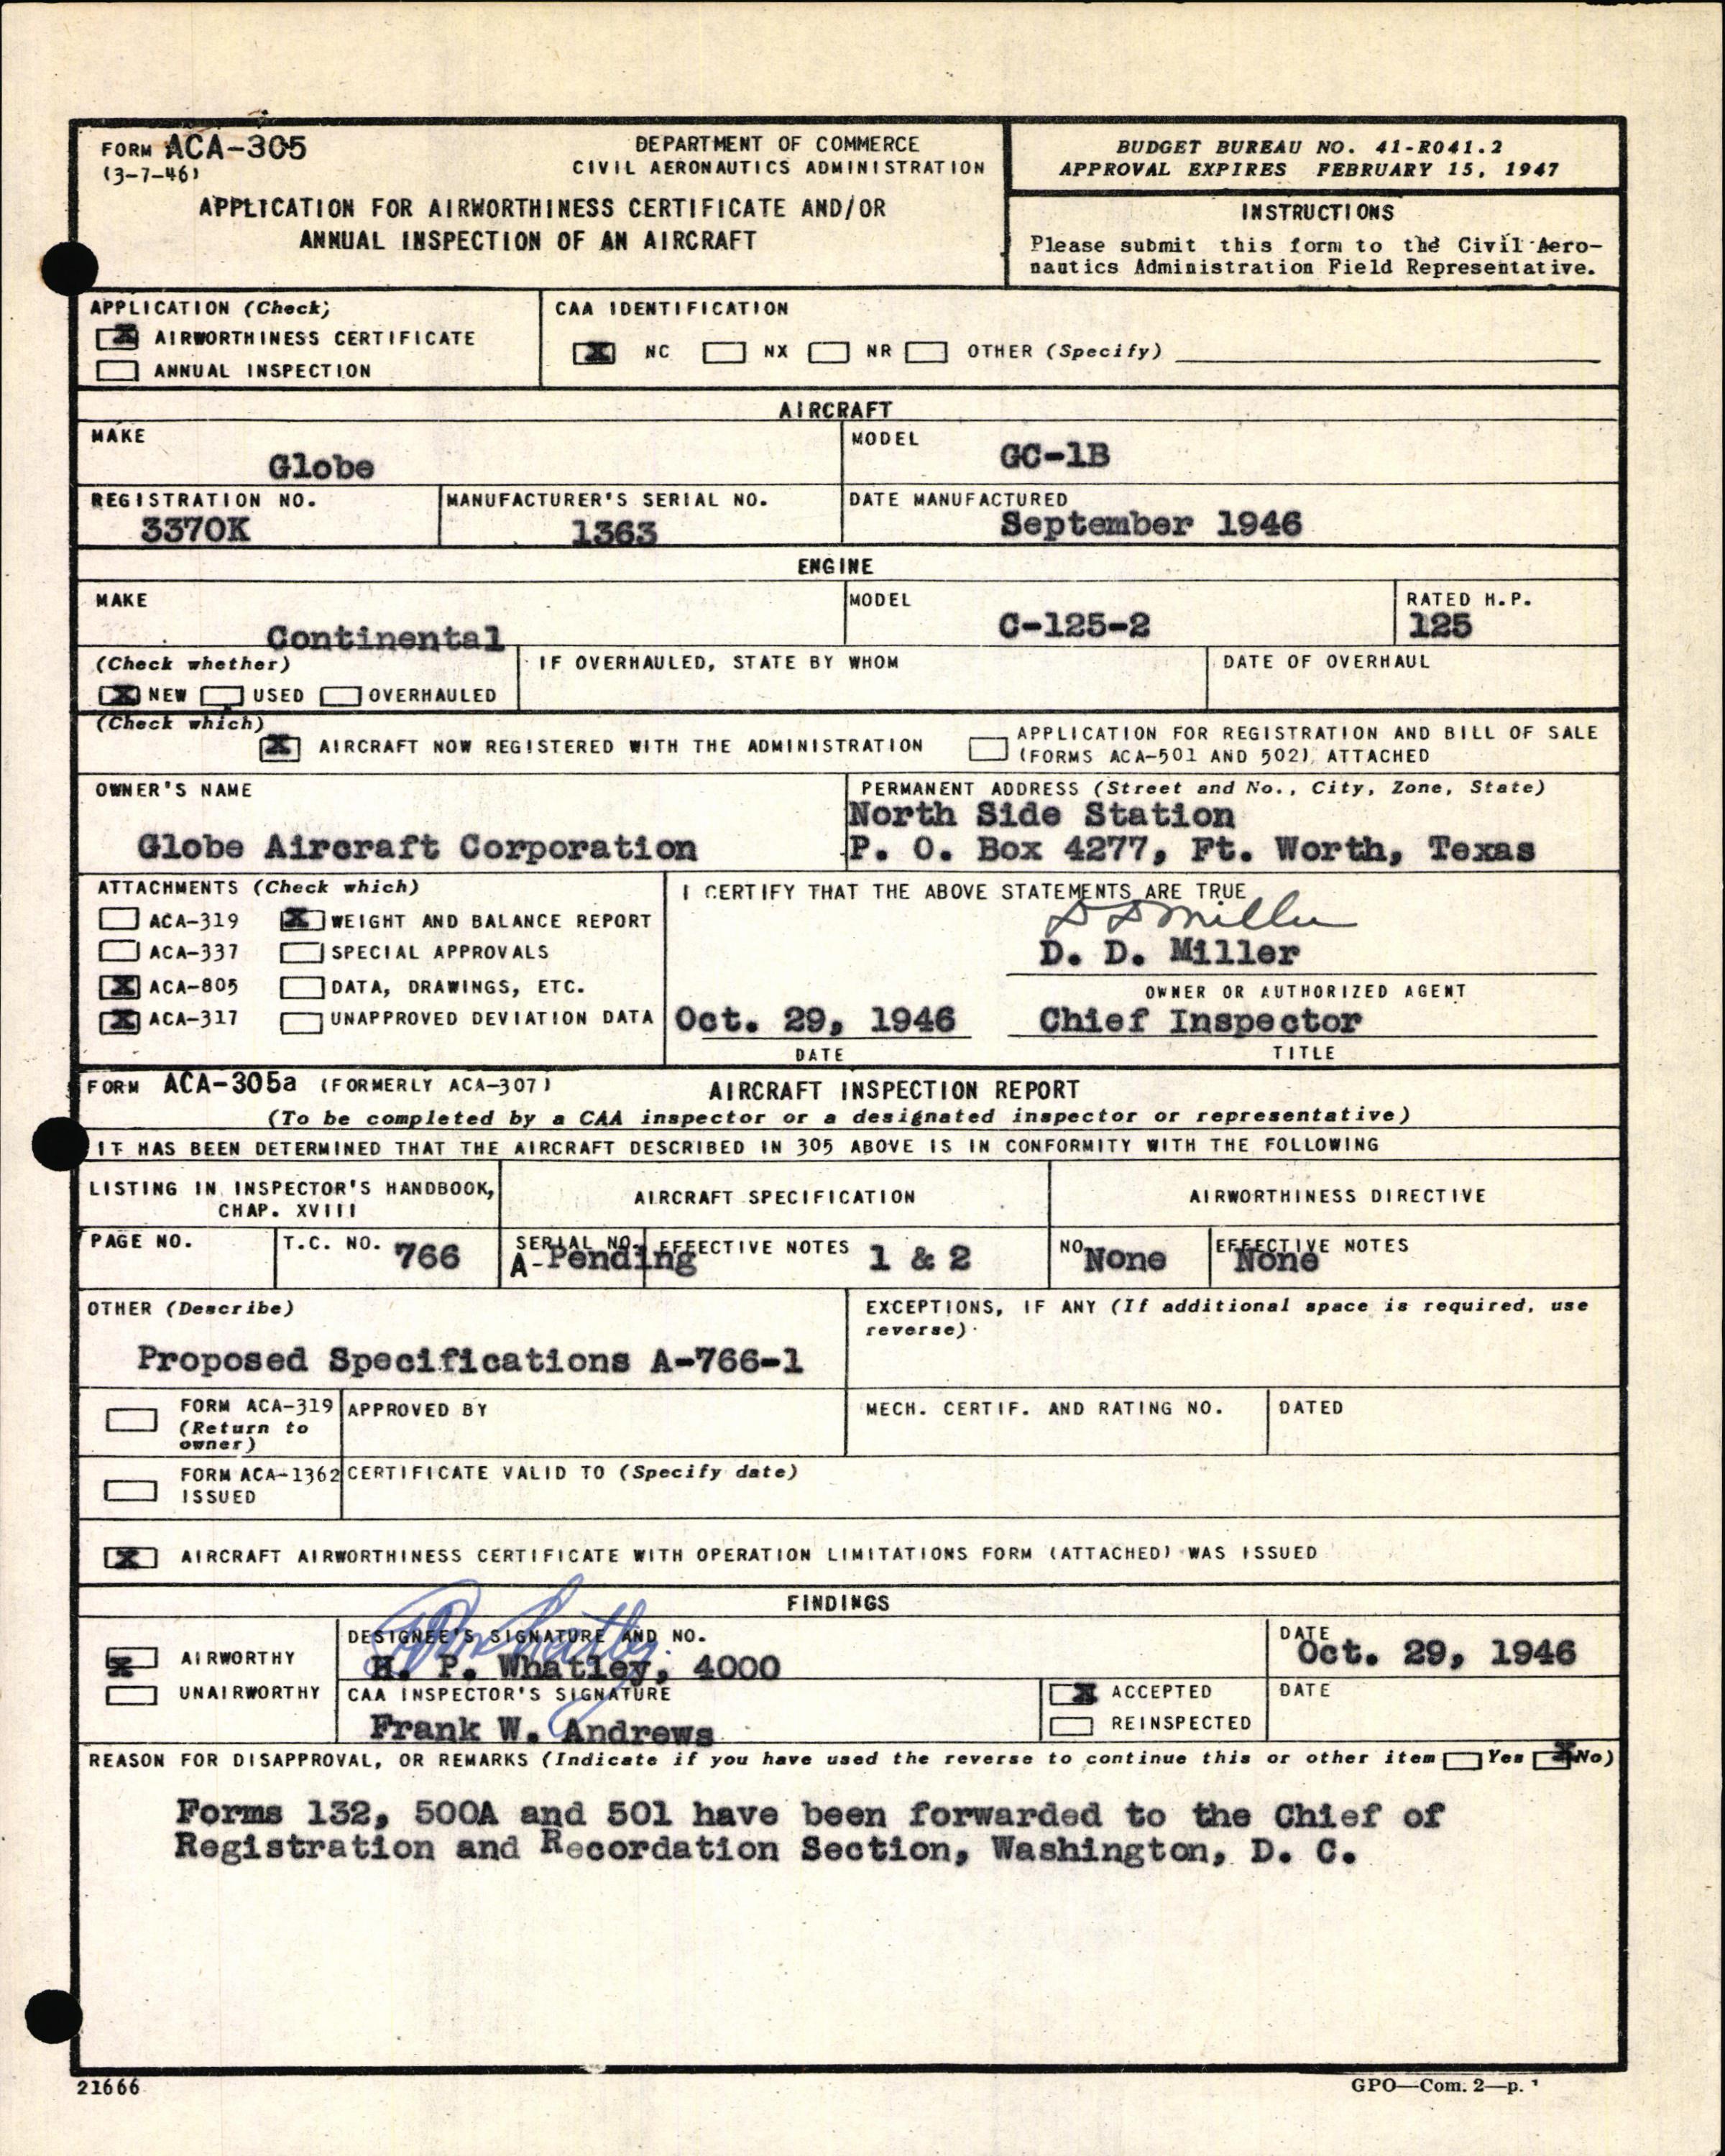 FORM ACA-305
(3-7-46)
DEPARTMENT OF COMMERCE
CIVIL AERONAUTICS ADMINISTRATION
APPLICATION FOR AIRWORTHINESS CERTIFICATE AND/OR
ANNUAL INSPECTION OF AN AIRCRAFT
BUDGET BUREAU NO. 41-R041.2
APPROVAL EXPIRES FEBRUARY 15, 1947
INSTRUCTIONS
Please submit this form to the Civil Aero-
nautics Administration Field Representative.
APPLICATION (Check)
X AIRWORTHINESS CERTIFICATE
ANNUAL INSPECTION
CAA IDENTIFICATION
X NC NX NR OTHER (Specify)
AIRCRAFT
MAKE
Globe
MODEL
GC-1B
REGISTRATION NO.
3370K
MANUFACTURER'S SERIAL NO.
1363
DATE MANUFACTURED
September 1946
ENGINE
MAKE
Continental
MODEL
C-125-2
RATED H.P.
125
(Check whether)
X NEW USED OVERHAULED
IF OVERHAULED, STATE BY WHOM
DATE OF OVERHAUL
(Check which)
X AIRCRAFT NOW REGISTERED WITH THE ADMINISTRATION
APPLICATION FOR REGISTRATION AND BILL OF SALE
(FORMS ACA-501 AND 502) ATTACHED
OWNER'S NAME
Globe Aircraft Corporation
PERMANENT ADDRESS (Street and No., City, Zone, State)
North Side Station
P. O. Box 4277, Ft. Worth, Texas
ATTACHMENTS (Check which)
ACA-319 X WEIGHT AND BALANCE REPORT
ACA-337 SPECIAL APPROVALS
X ACA-805 DATA, DRAWINGS, ETC.
X ACA-317 UNAPPROVED DEVIATION DATA
I CERTIFY THAT THE ABOVE STATEMENTS ARE TRUE
D D Miller
D. D. Miller
OWNER OR AUTHORIZED AGENT
Oct. 29, 1946
Chief Inspector
DATE
TITLE
FORM ACA-305a (FORMERLY ACA-307)
AIRCRAFT INSPECTION REPORT
(To be completed by a CAA inspector or a designated inspector or representative)
IT HAS BEEN DETERMINED THAT THE AIRCRAFT DESCRIBED IN 305 ABOVE IS IN CONFORMITY WITH THE FOLLOWING
LISTING IN INSPECTOR'S HANDBOOK,
CHAP. XVIII
AIRCRAFT SPECIFICATION
AIRWORTHINESS DIRECTIVE
PAGE NO.
T.C. NO. 766
SERIAL NO.
A-Pending
EFFECTIVE NOTES 1 & 2
NO. None
EFFECTIVE NOTES
None
OTHER (Describe)
Proposed Specifications A-766-1
EXCEPTIONS, IF ANY (If additional space is required, use
reverse)
FORM ACA-319
(Return to
owner)
APPROVED BY
MECH. CERTIF. AND RATING NO.
DATED
FORM ACA-1362
ISSUED
CERTIFICATE VALID TO (Specify date)
X AIRCRAFT AIRWORTHINESS CERTIFICATE WITH OPERATION LIMITATIONS FORM (ATTACHED) WAS ISSUED
FINDINGS
X AIRWORTHY
UNAIRWORTHY
DESIGNEE'S SIGNATURE AND NO.
H P Whatley
H. P. Whatley, 4000
DATE
Oct. 29, 1946
CAA INSPECTOR'S SIGNATURE
Frank W. Andrews
X ACCEPTED
REINSPECTED
DATE
REASON FOR DISAPPROVAL, OR REMARKS (Indicate if you have used the reverse to continue this or other item Yes X No)
Forms 132, 500A and 501 have been forwarded to the Chief of
Registration and Recordation Section, Washington, D. C.
21666
GPO—Com. 2—p.